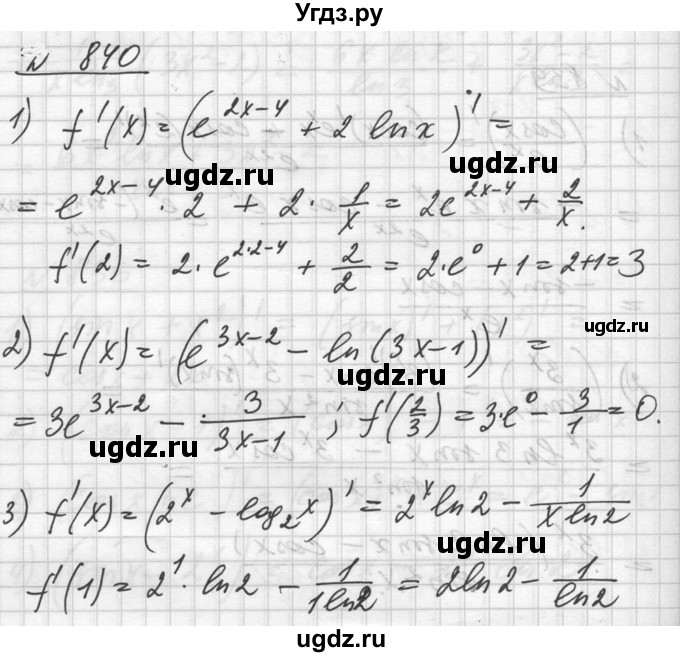 Угдз.ру
№ 840
1) f'(x) = (e^{2x-4} + 2 ln x)' =
= e^{2x-4} · 2 + 2 · 1/x = 2e^{2x-4} + 2/x.
ugdz.ru ugdz.ru
f'(2) = 2 · e^{2·2-4} + 2/2 = 2 · e^0 + 1 = 2+1 = 3
ugdz.ru
2) f'(x) = (e^{3x-2} - ln(3x-1))' =
ugdz.ru
= 3e^{3x-2} - 3/(3x-1) ; f'(2/3) = 3·e^0 - 3/1 = 0.
ugdz.ru ugdz.ru
3) f'(x) = (2^x - log_2 x)' = 2^x ln2 - 1/(x ln2)
ugdz.ru
f'(1) = 2^1 · ln2 - 1/(1 ln2) = 2ln2 - 1/ln2
ugdz.ru ugdz.ru
ugdz.ru